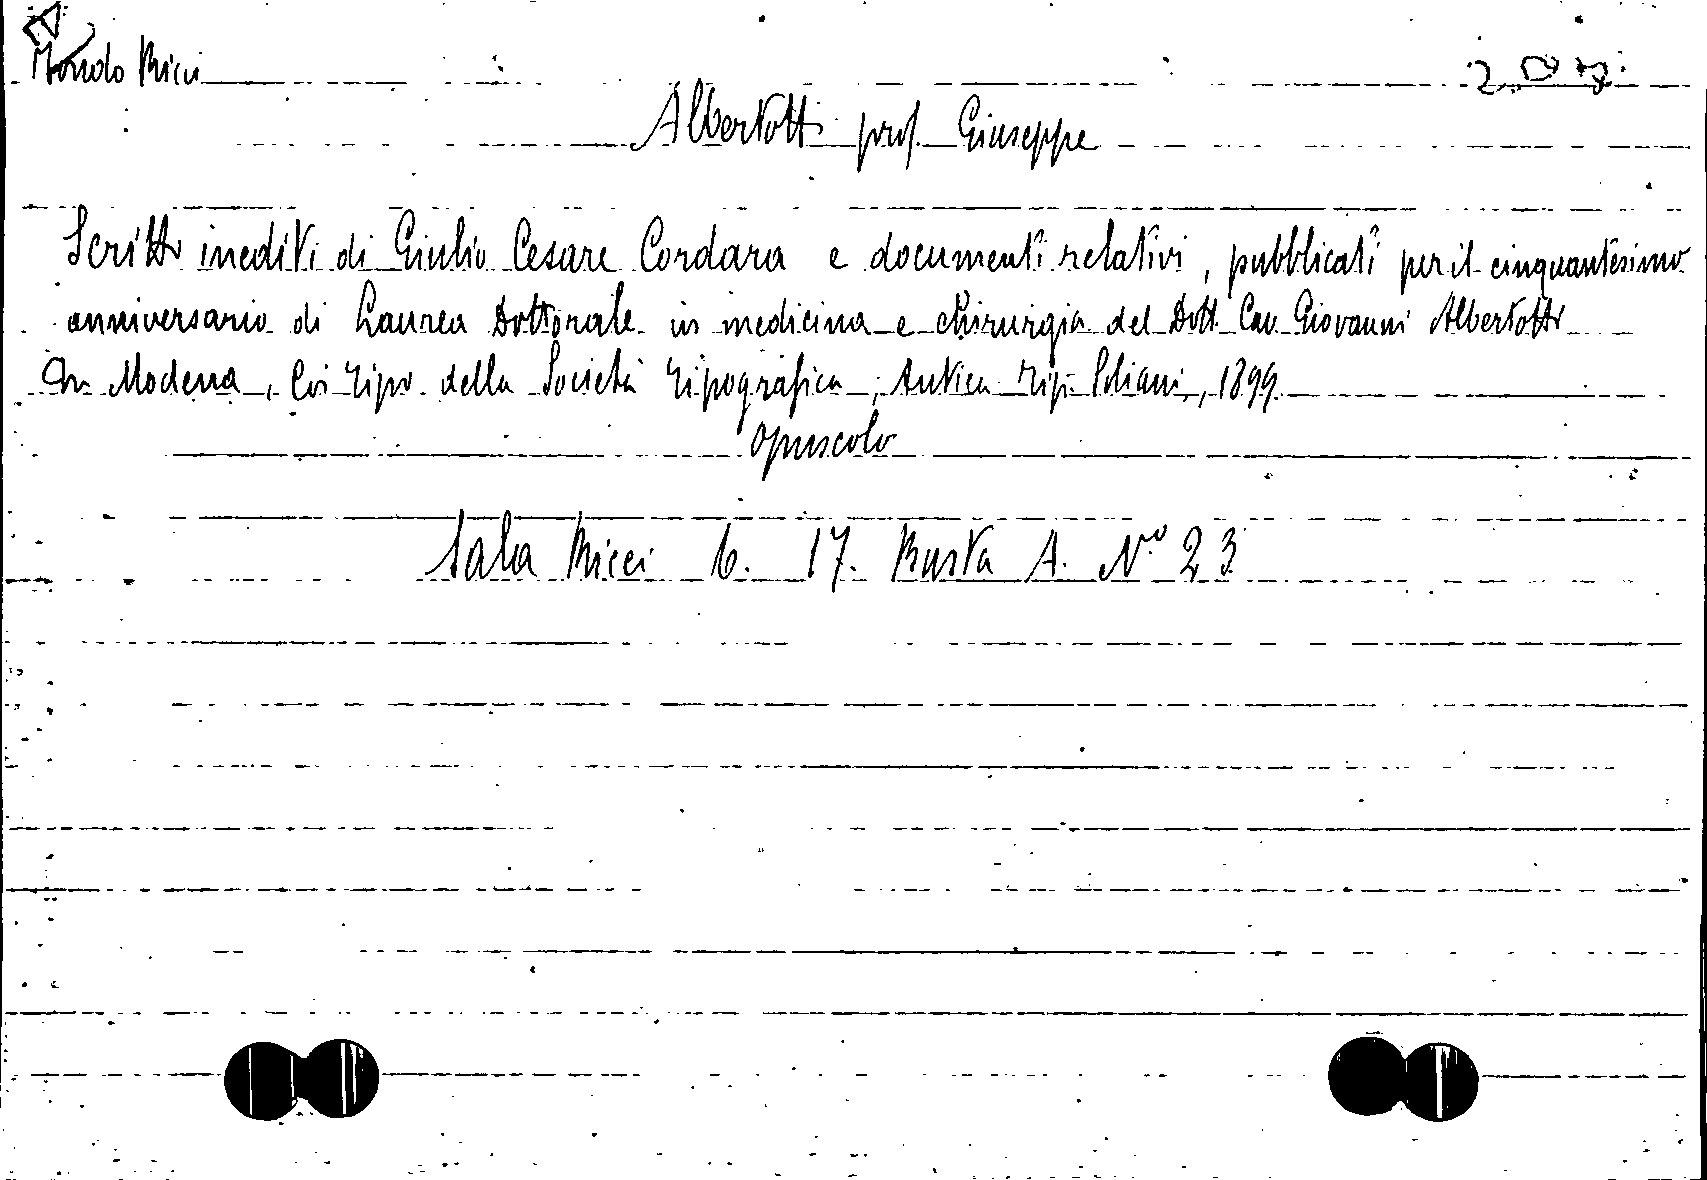 Mondo Ricci
Albertotti prof. Giuseppe
Scritti inediti di Giulio Cesare Cordara e documenti relativi, pubblicati per il cinquantesimo
anniversario di Laurea Dottorale in medicina e chirurgia del Dott. Cav. Giovanni Albertotti
In Modena, Coi Tipo della Società Tipografica, Antica Tip. Soliani, 1899.
opuscolo
Sala Ricci 6. 17. Busta A. N.º 23